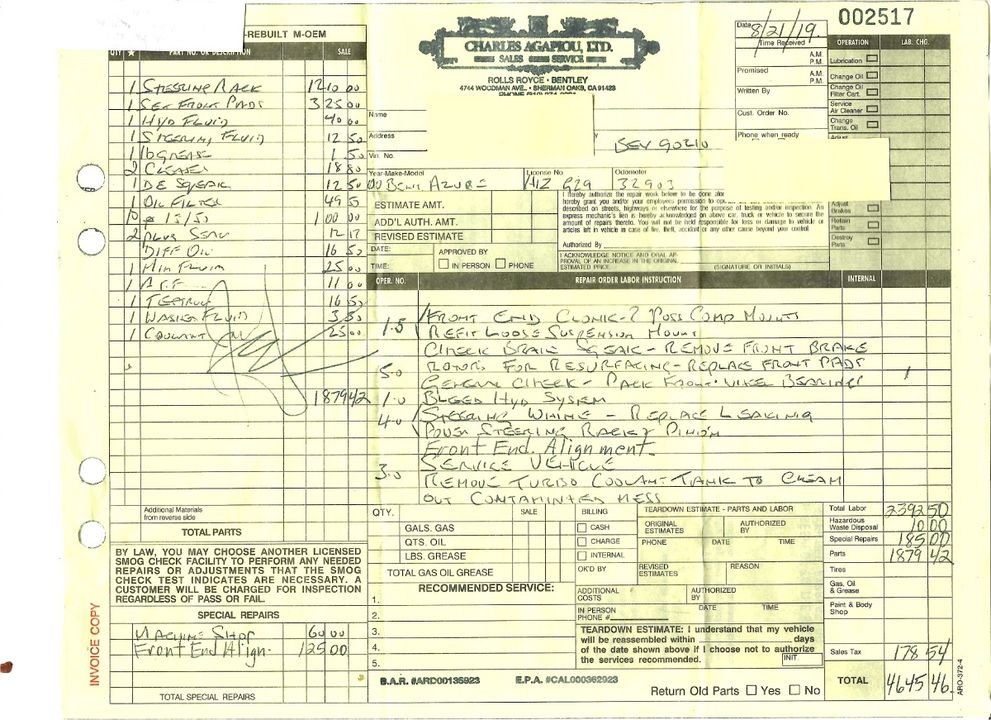 002517
-REBUILT M-OEM
CHARLES AGAPIOU, LTD.
SALES SERVICE
ROLLS ROYCE • BENTLEY
4744 WOODMAN AVE. • SHERMAN OAKS, CA 91423
Date 8/21/19.
Time Received A.M. P.M.
Promised A.M. P.M.
Written By
Cust. Order No.
Phone when ready
OPERATION LAB. CHG.
Lubrication
Change Oil
Change Oil Filter Cart.
Service Air Cleaner
Change Trans. Oil
Adjust Brakes
Retain Parts
Destroy Parts
QTY PART NO. OR DESCRIPTION SALE
1 STEERING RACK 1210 00
1 SET FRONT PADS 325 00
1 HYD FLUID 40 00
1 STEERING FLUID 12 50
1 lb GREASE 1 50
2 CLEANER 18 80
1 DE SQEAK 12 50
1 OIL FILTER 49 55
10 15/50 100 00
2 PLUG SEAL 12 12
DIFF OIL 16 50
1 MIN FLUID 25 00
1 11 00
1 16 50
1 WASHER FLUID 3 50
1 COOLANT 25 00
1879 42
Name
Address
Vin. No.
Year-Make-Model 00 BENT AZURE
License No
Odometer 32903
ESTIMATE AMT.
ADD'L AUTH. AMT.
REVISED ESTIMATE
DATE:
TIME:
APPROVED BY
IN PERSON PHONE
I hereby authorize the repair work below to be done
hereby grant you and/or your employees permission to
described on streets, highways or elsewhere for the purpose of testing and/or inspection. An
express mechanic's lien is hereby acknowledged on above car, truck or vehicle to secure the
amount of repairs thereto. You will not be held responsible for loss or damage to vehicle or
articles left in vehicle in case of fire, theft, accident or any other cause beyond your control
Authorized By
I ACKNOWLEDGE NOTICE AND ORAL AP-
PROVAL OF AN INCREASE IN THE ORIGINAL
ESTIMATED PRICE. (SIGNATURE OR INITIALS)
OPER. NO. REPAIR ORDER LABOR INSTRUCTION INTERNAL
FRONT END CLONK - 2 POSS COMP MOUNTS
1.5 REFIT LOOSE SUSPENSION MOUNT
CHECK BRAKE SQEAK - REMOVE FRONT BRAKE
5.0 ROTORS FOR RESURFACING - REPLACE FRONT PADS
GENERAL CHECK - PACK FRONT WHEEL BEARINGS
1.0 BLEED HYD SYSTEM
4.0 STEERING WHINE - REPLACE LEAKING
POWER STEERING RACK & PINION
Front End. Alignment.
3.0 SERVICE VEHICLE
REMOVE TURBO COOLANT TANK TO CLEAN
OUT CONTAMINTED MESS
Additional Materials
from reverse side
TOTAL PARTS
BY LAW, YOU MAY CHOOSE ANOTHER LICENSED
SMOG CHECK FACILITY TO PERFORM ANY NEEDED
REPAIRS OR ADJUSTMENTS THAT THE SMOG
CHECK TEST INDICATES ARE NECESSARY. A
CUSTOMER WILL BE CHARGED FOR INSPECTION
REGARDLESS OF PASS OR FAIL.
SPECIAL REPAIRS
MACHINE SHOP 60 00
Front End Align- 125 00
TOTAL SPECIAL REPAIRS
INVOICE COPY
QTY. SALE BILLING
GALS. GAS CASH
QTS. OIL CHARGE
LBS. GREASE INTERNAL
TOTAL GAS OIL GREASE OK'D BY
RECOMMENDED SERVICE:
1.
2.
3.
4.
5.
TEARDOWN ESTIMATE - PARTS AND LABOR
ORIGINAL ESTIMATES AUTHORIZED BY
PHONE DATE TIME
REVISED ESTIMATES REASON
ADDITIONAL COSTS AUTHORIZED BY
IN PERSON PHONE # DATE TIME
TEARDOWN ESTIMATE: I understand that my vehicle
will be reassembled within days
of the date shown above if I choose not to authorize
the services recommended. INIT.
Total Labor 2392 50
Hazardous Waste Disposal 10 00
Special Repairs 185 00
Parts 1879 42
Tires
Gas, Oil & Grease
Paint & Body Shop
Sales Tax 178 54
TOTAL 4645 46.
B.A.R. #ARD00135923 E.P.A. #CAL000362923
Return Old Parts Yes No
ARO-372-4